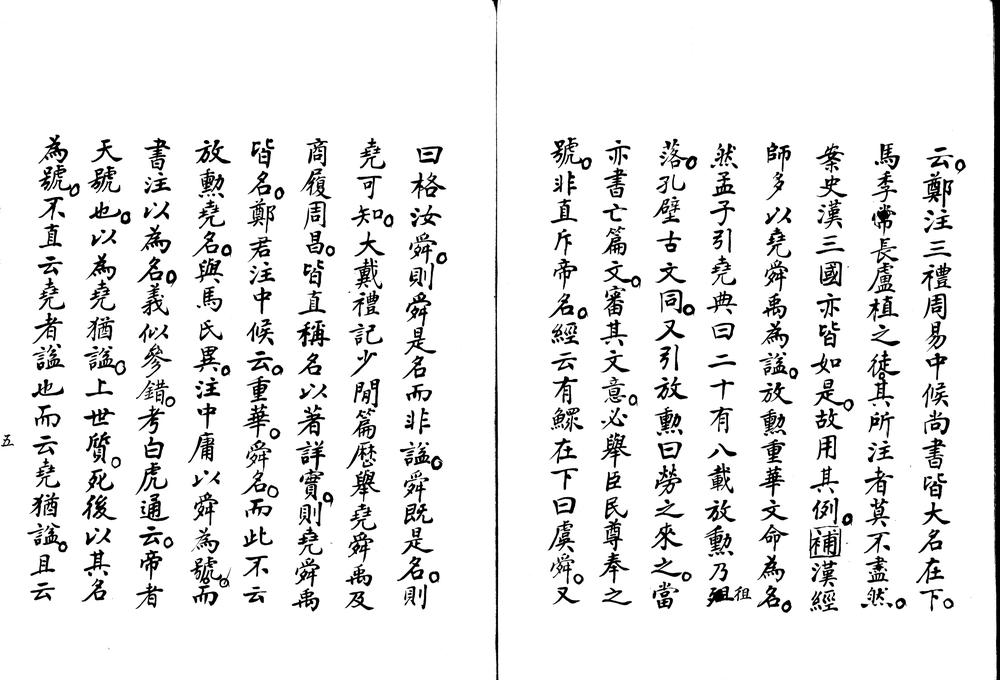 云。鄭注三禮周易中候尚書皆大名在下。
馬季常長盧植之徒其所注者莫不盡然。
案史漢三國亦皆如是。故用其例。補漢經
師多以堯舜禹為諡。放勲重華文命為名。
然孟子引堯典曰二十有八載放勲乃殂
徂
落。孔壁古文同。又引放勲曰勞之來之。當
亦書亡篇文。審其文意。必舉臣民尊奉之
號。非直斥帝名。經云有鰥在下曰虞舜。又
曰格汝舜。則舜是名而非諡。舜既是名。則
堯可知。大戴禮記少閒篇歷舉堯舜禹及
商履周昌。皆直稱名以著詳實。則堯舜禹
皆名。鄭君注中候云。重華。舜名。而此不云
放勲堯名。與馬氏異。注中庸以舜為號。而
書注以為名。義似參錯。考白虎通云。帝者
天號也。以為堯猶諡。上世質。死後以其名
為號。不直云堯者諡也而云堯猶諡。且云
五